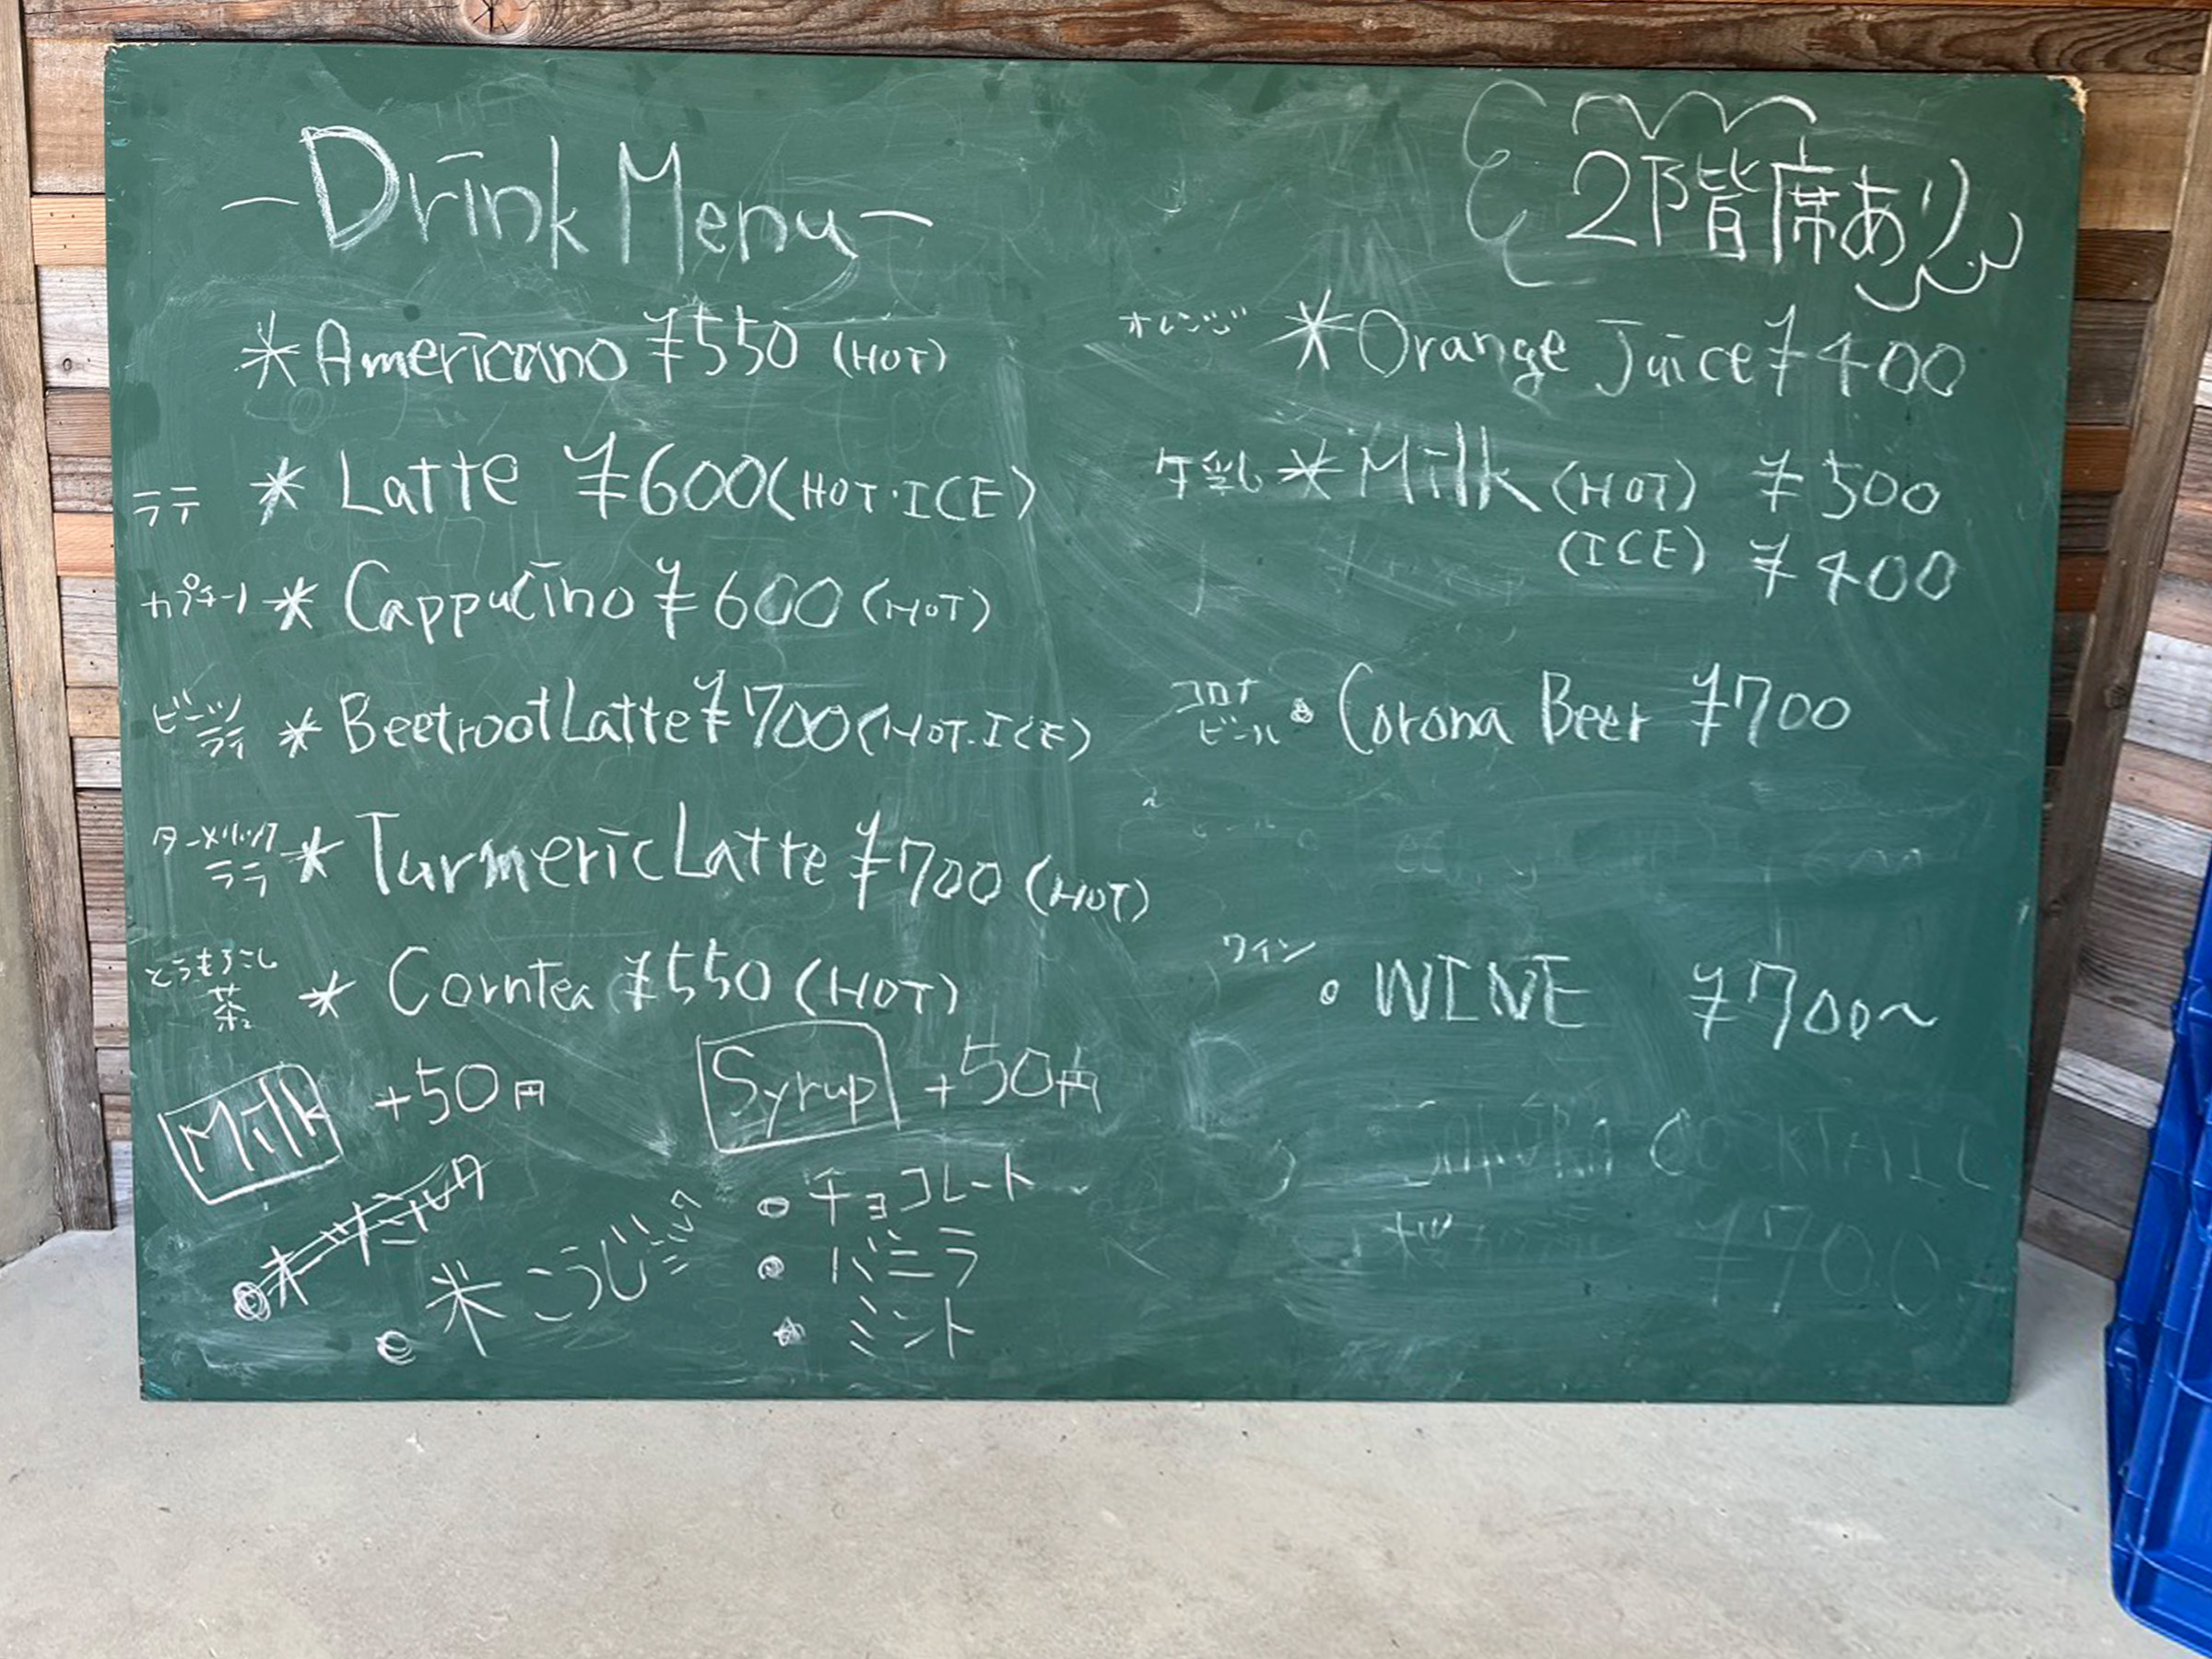 Drink Menu
＊Americano ¥550 (HOT)
ラテ ＊ Latte ¥600 (HOT・ICE)
カプチーノ ＊ Cappucino ¥600 (HOT)
ビーツ
ラテ ＊ Beetroot Latte ¥700 (HOT.ICE)
ターメリック
ララ ＊ Turmeric Latte ¥700 (HOT)
とうもろこし
茶 ＊ Corn tea ¥550 (HOT)
Milk +50円
オーツミルク
米こうじミルク
Syrup +50円
チョコレート
バニラ
ミント
2階席あり
オレンジ ＊Orange Juice ¥400
牛乳 ＊Milk (HOT) ¥500
(ICE) ¥400
コロナ
ビール Corona Beer ¥700
ワイン
WINE ¥700〜
SAKURA COCKTAIL
¥700